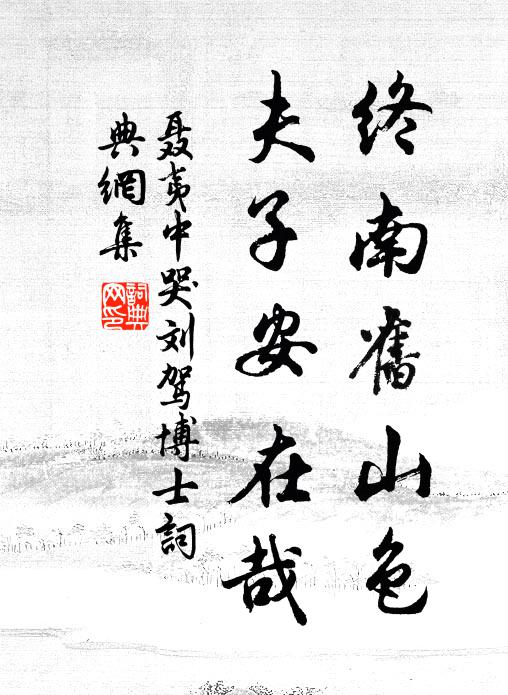 終南舊山色
夫子安在哉
聂夷中哭刘驾博士詞
典網集
詞典
网印